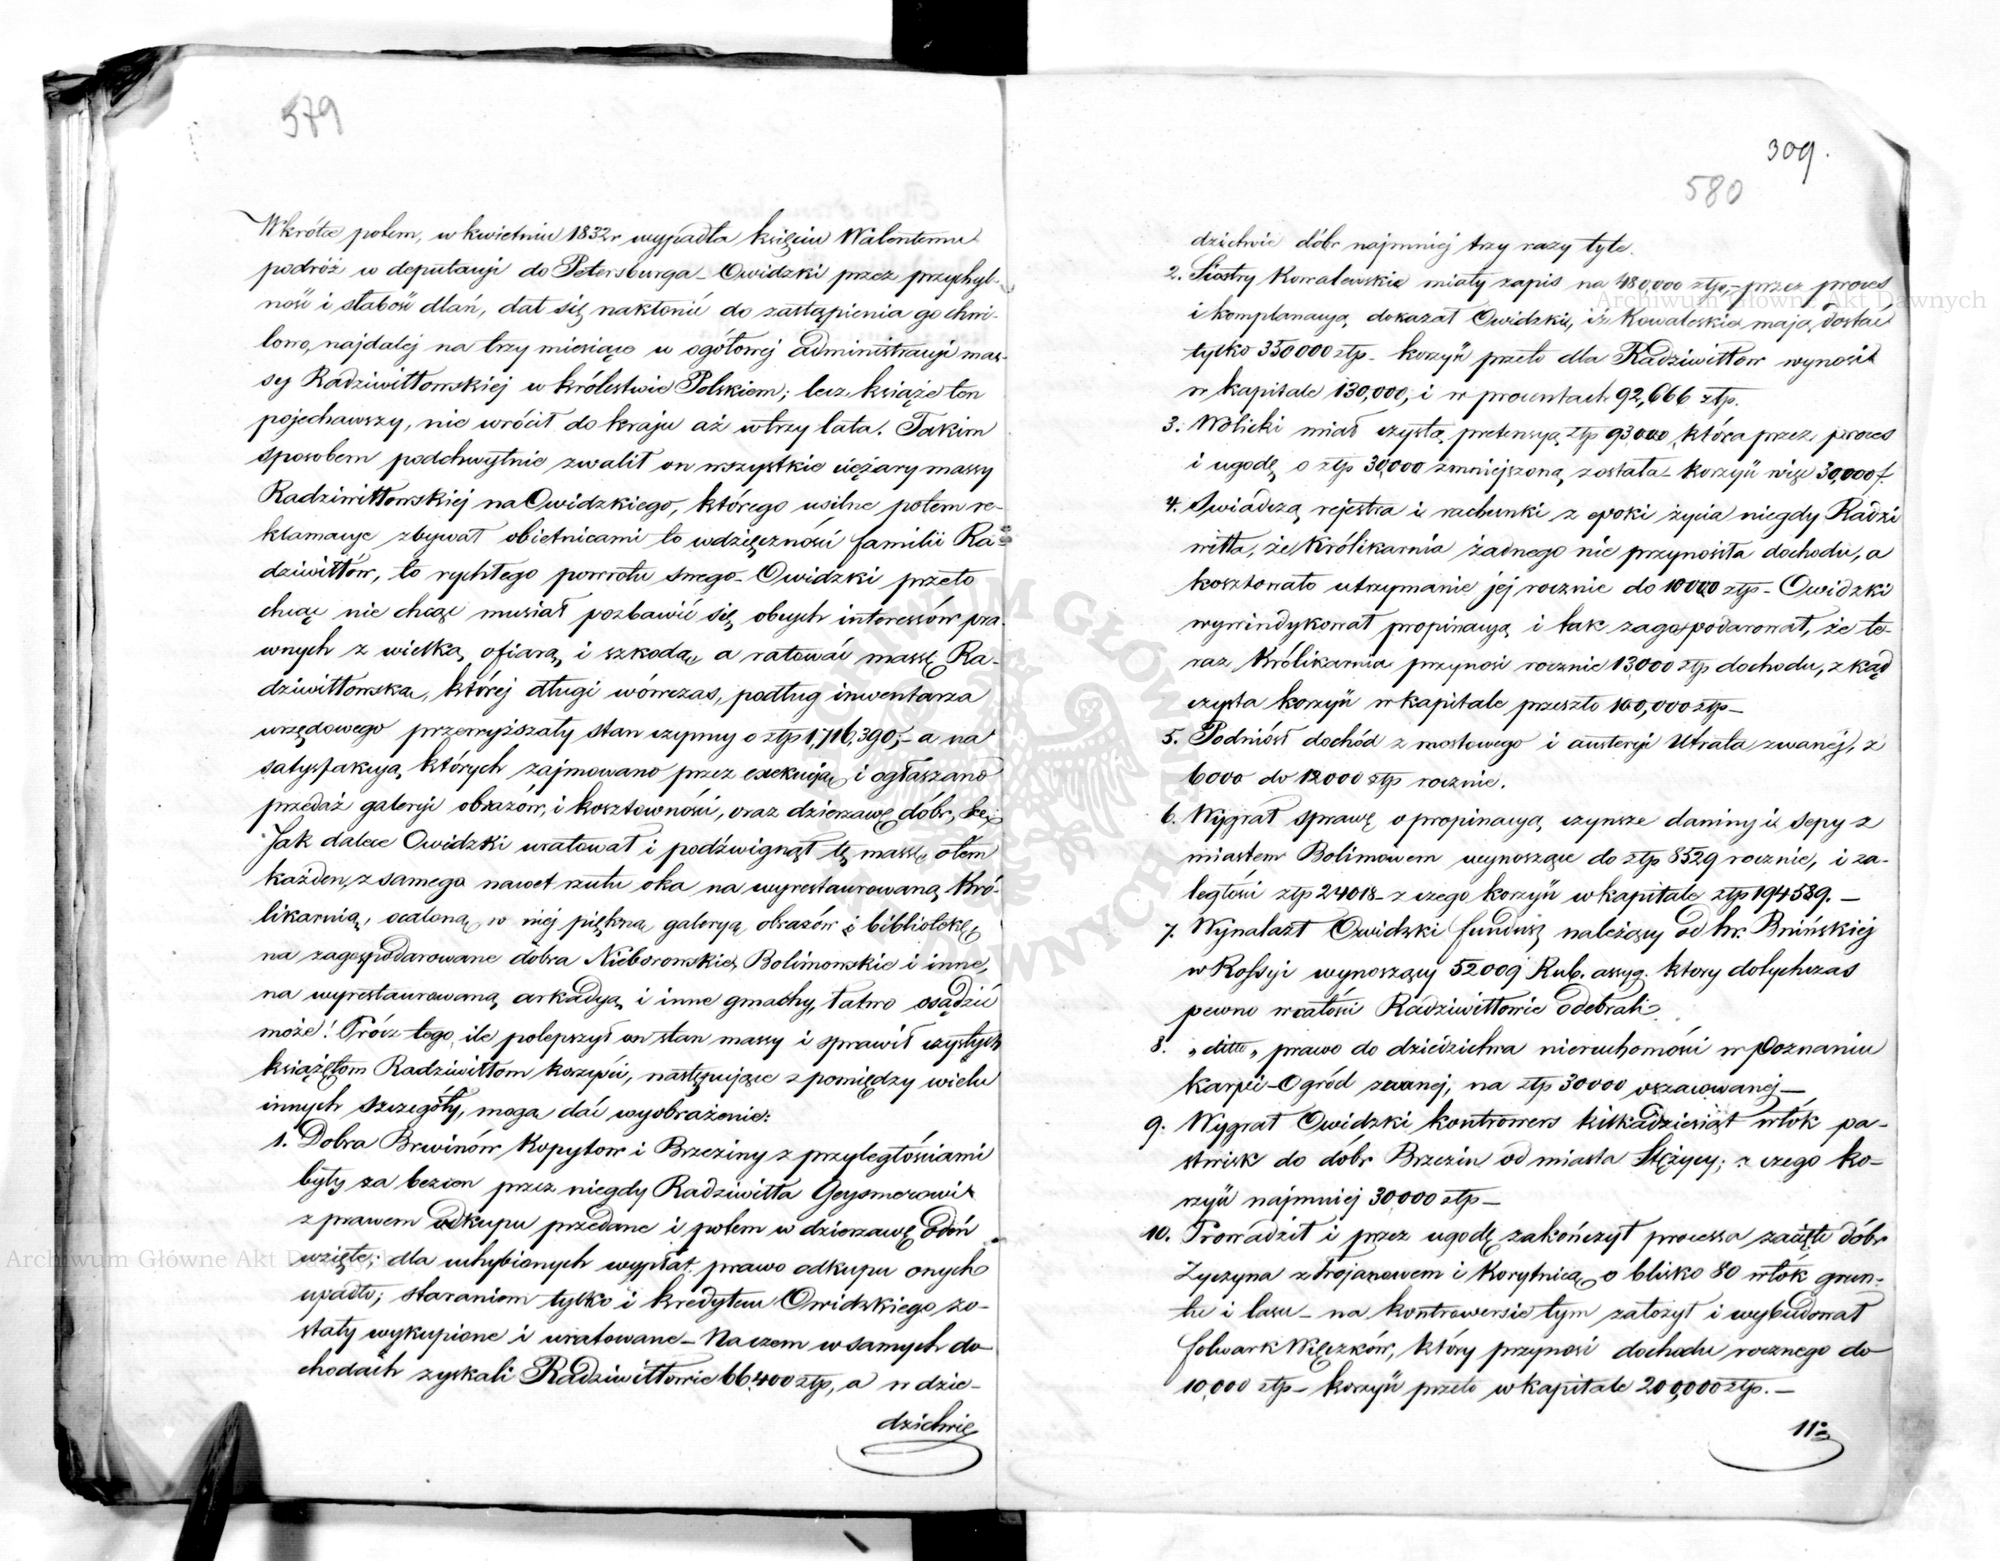 579
Wkrótce potem, w kwietniu 1832r wypadła księciu Walentemu
podróż w deputacyi do Petersburga – Owidzki przez przychyl-
ność i słabość dlań, dał się nakłonić do zastąpienia go chwi-
lowo, najdalej na trzy miesiące w ogółowej administracyi mas-
sy Radziwiłłowskiej w królestwie Polskiem; lecz książe ten
pojechawszy, nie wrócił do kraju aż w trzy lata. Takim
sposobem podchwytnie zwalił on wszystkie ciężary massy
Radziwiłłowskiej na Owidzkiego, którego usilne potem re-
klamacye zbywał obietnicami to wdzięczności familii Ra-
dziwiłłów, to rychłego powrotu swego – Owidzki przeto
chcąc nie chcąc musiał pozbawić się obcych interessów pra-
wnych z wielką ofiarą i szkodą, a ratować massę Ra-
dziwiłłowską, której długi wówczas, podług inwentarza
urzędowego przewyższały stan czynny o złp 1,716,390,– a na
satysfakcyą których zajmowano przez exekucją i ogłaszano
przedaż galeryi obrazów, i kosztowności, oraz dzierzawę dóbr,
Jak dalece Owidzki uratował i podźwignął tę massę, o tem
każden, z samego nawet rzutu oka na wyrestaurowaną Kró-
likarnią, ocaloną w niej piękną galeryą obrazów i bibliotekę
na zagospodarowane dobra Nieborowskie, Bolimowskie i inne,
na wyrestaurowaną arkadyą i inne gmachy, łatwo osądzić
może! Prócz tego ile polepszył on stan massy i sprawił czystych
książętom Radziwiłłom korzyści, następujące z pomiędzy wielu
innych szczegóły, mogą dać wyobrażenie:
1. Dobra Brwinów Kopytow i Brzeziny z przyległościami
były za bezcen przez niegdy Radziwiłła Geysmerowi
z prawem odkupu przedane i potem w dzierzawę odeń
wzięte; dla uchybionych wypłat prawo odkupu onych
upadło; staraniem tylko i kredytem Owidzkiego zo-
stały wykupione i uratowane – Na czem w samych do
chodach zyskali Radziwiłłowie 66,400 złp, a w dzie-
dzictwie
309.
580
dzictwie dóbr najmniej trzy razy tyle.
2. Siostry Kowalewskie miały zapis na 480,000 złp,– przez proces
i komplanacyą dokazał Owidzki, iż Kowaleskie mają dostać
tylko 350000 złp – korzyść przeto dla Radziwiłłow wynosi
w kapitale 130,000, i w procentach 92,666 złp.
3. Wolicki miał czystą pretensyą złp 93000 która przez proces
i ugodę o złp 30,000 zmniejszoną została – korzyść więc 30,000 f.
4. Swiadczą rejestra i rachunki z epoki życia niegdy Radzi
wiłła, że Królikarnia żadnego nie przynosiła dochodu, a
kosztowało utrzymanie jej rocznie do 10000 złp – Owidzki
wywindykował propinacyą i tak zagospodarował, że te-
raz Królikarnia przynosi rocznie 13,000 złp dochodu, z kąd
czysta korzyść w kapitale przeszło 100,000 złp –
5. Podniósł dochód z mostowego i austeryi Utrata zwanéj, z
6000 do 12000 złp rocznie.
6. Wygrał sprawę o propinacyą czynsze daniny i sepy z
miastem Bolimowem wynoszące do złp 8529 rocznie, i za-
ległości złp 24018 – z czego korzyść w kapitale złp 194589. –
7. Wynalazł Owidzki fundusz należący od hr. Bnińskiej
w Rossyi wynoszący 52009 Rub. assyg. ktory dotychczas
pewno w całości Radziwiłłowie odebrali.
8. „ ditto „ prawo do dziedzictwa nieruchomości w Poznaniu
Karpi-Ogród zwanej, na złp 30000 oszacowanej –
9. Wygrał Owidzki kontrowers kilkadziesiąt włók pa-
stwisk do dóbr Brzezin od miasta Stężycy; z czego ko-
rzyść najmniej 30,000 złp –
10. Prowadził i przez ugodę zakończył processa zacięte dóbr
Życzyna z Trojanowem i Korytnicą o blisko 80 włok grun-
tu i lasu – na kontrowersie tym założył i wybudował
folwark Więczków, który przynosi dochodu rocznego do
10,000 złp – korzyść przeto w kapitale 200,000 złp. –
11:
Archiwum Główne Akt Dawnych
Archiwum Główne Akt Dawnych
ARCHIWUM GŁÓWNE AKT DAWNYCH